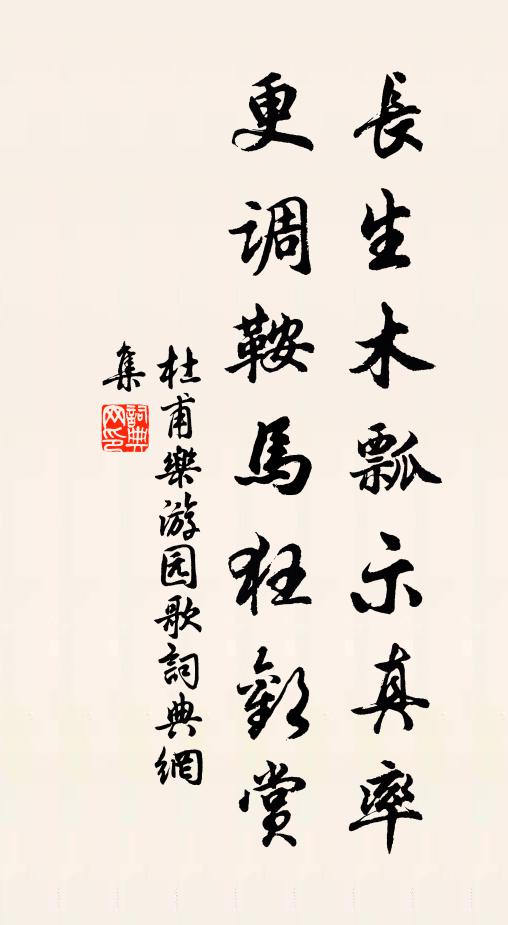 長生木瓢示真率
更调鞍馬狂歡賞
杜甫樂游园歌詞典網
集
詞典網印